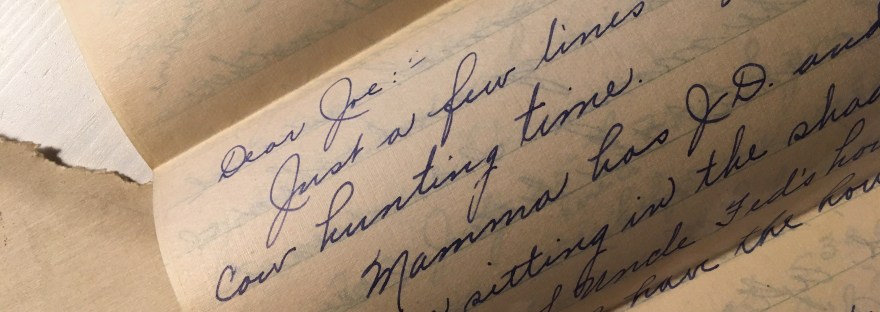 Dear Joe:-
Just a few lines
Cow hunting time.
Mamma has J.D. and
sitting in the shad
Uncle Fed's hou
have the hou